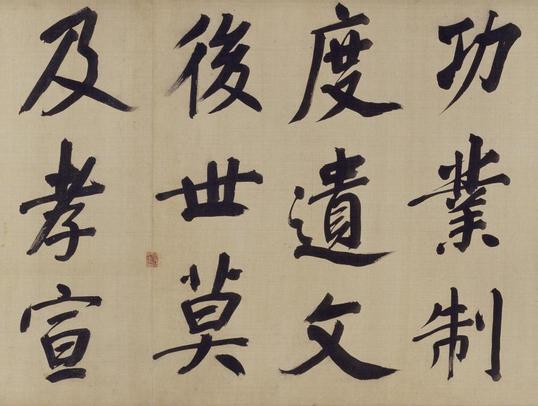 功業制
度遺文
後世莫
及孝宣